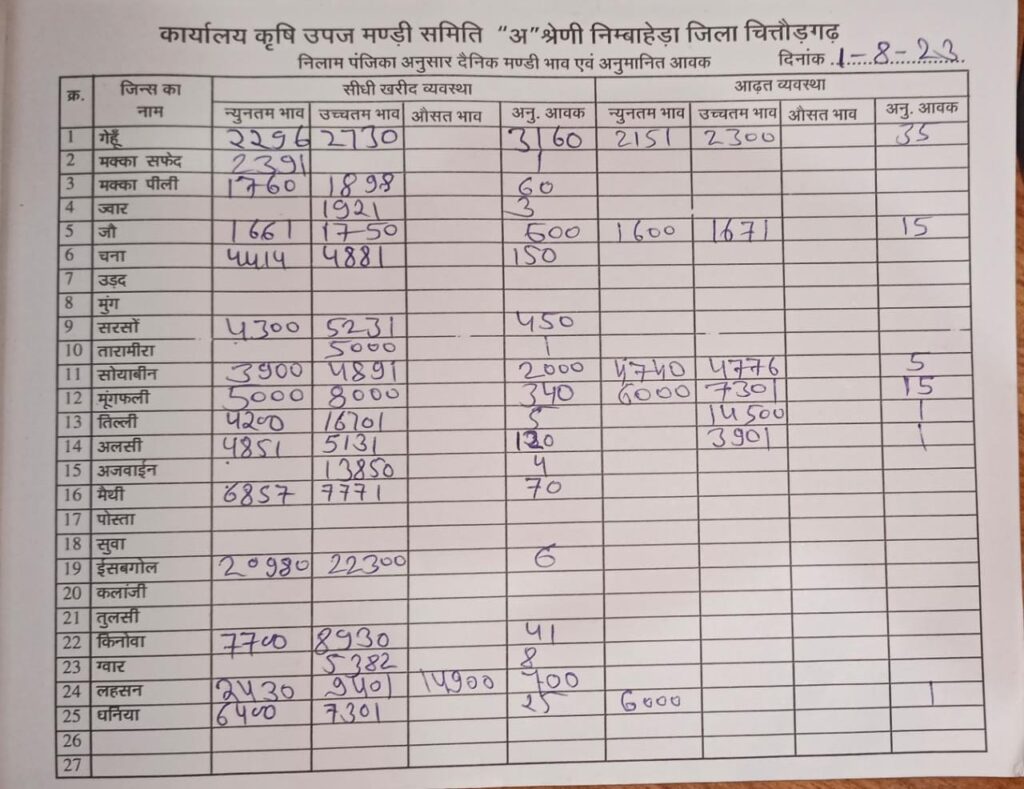 कार्यालय कृषि उपज मण्ड़ी समिति “अ” श्रेणी निम्बाहेड़ा जिला चित्तौड़गढ़
निलाम पंजिका अनुसार दैनिक मण्डी भाव एवं अनुमानित आवक दिनांक 1-8-23
क्र. जिन्स का नाम सीधी खरीद व्यवस्था आढ़त व्यवस्था
न्युनतम भाव उच्चतम भाव औसत भाव अनु. आवक न्युनतम भाव उच्चतम भाव औसत भाव अनु. आवक
1 गेहूँ 2296 2730 3160 2151 2300 35
2 मक्का सफेद 2391 1
3 मक्का पीली 1760 1898 60
4 ज्वार 1921 3
5 जौ 1661 1750 600 1600 1671 15
6 चना 4414 4881 150
7 उड़द
8 मुंग
9 सरसों 4300 5231 450
10 तारामीरा 5000 1
11 सोयाबीन 3900 4891 2000 4740 4776 5
12 मूंगफली 5000 8000 340 6000 7301 15
13 तिल्ली 4200 16701 5 14500 1
14 अलसी 4851 5131 120 3901 1
15 अजवाईन 13850 4
16 मैथी 6857 7771 70
17 पोस्ता
18 सुवा
19 ईसबगोल 20980 22300 6
20 कलांजी
21 तुलसी
22 किनोवा 7700 8930 41
23 ग्वार 5382 8
24 लहसन 2430 9401 14900 700
25 धनिया 6400 7301 25 6000 1
26
27